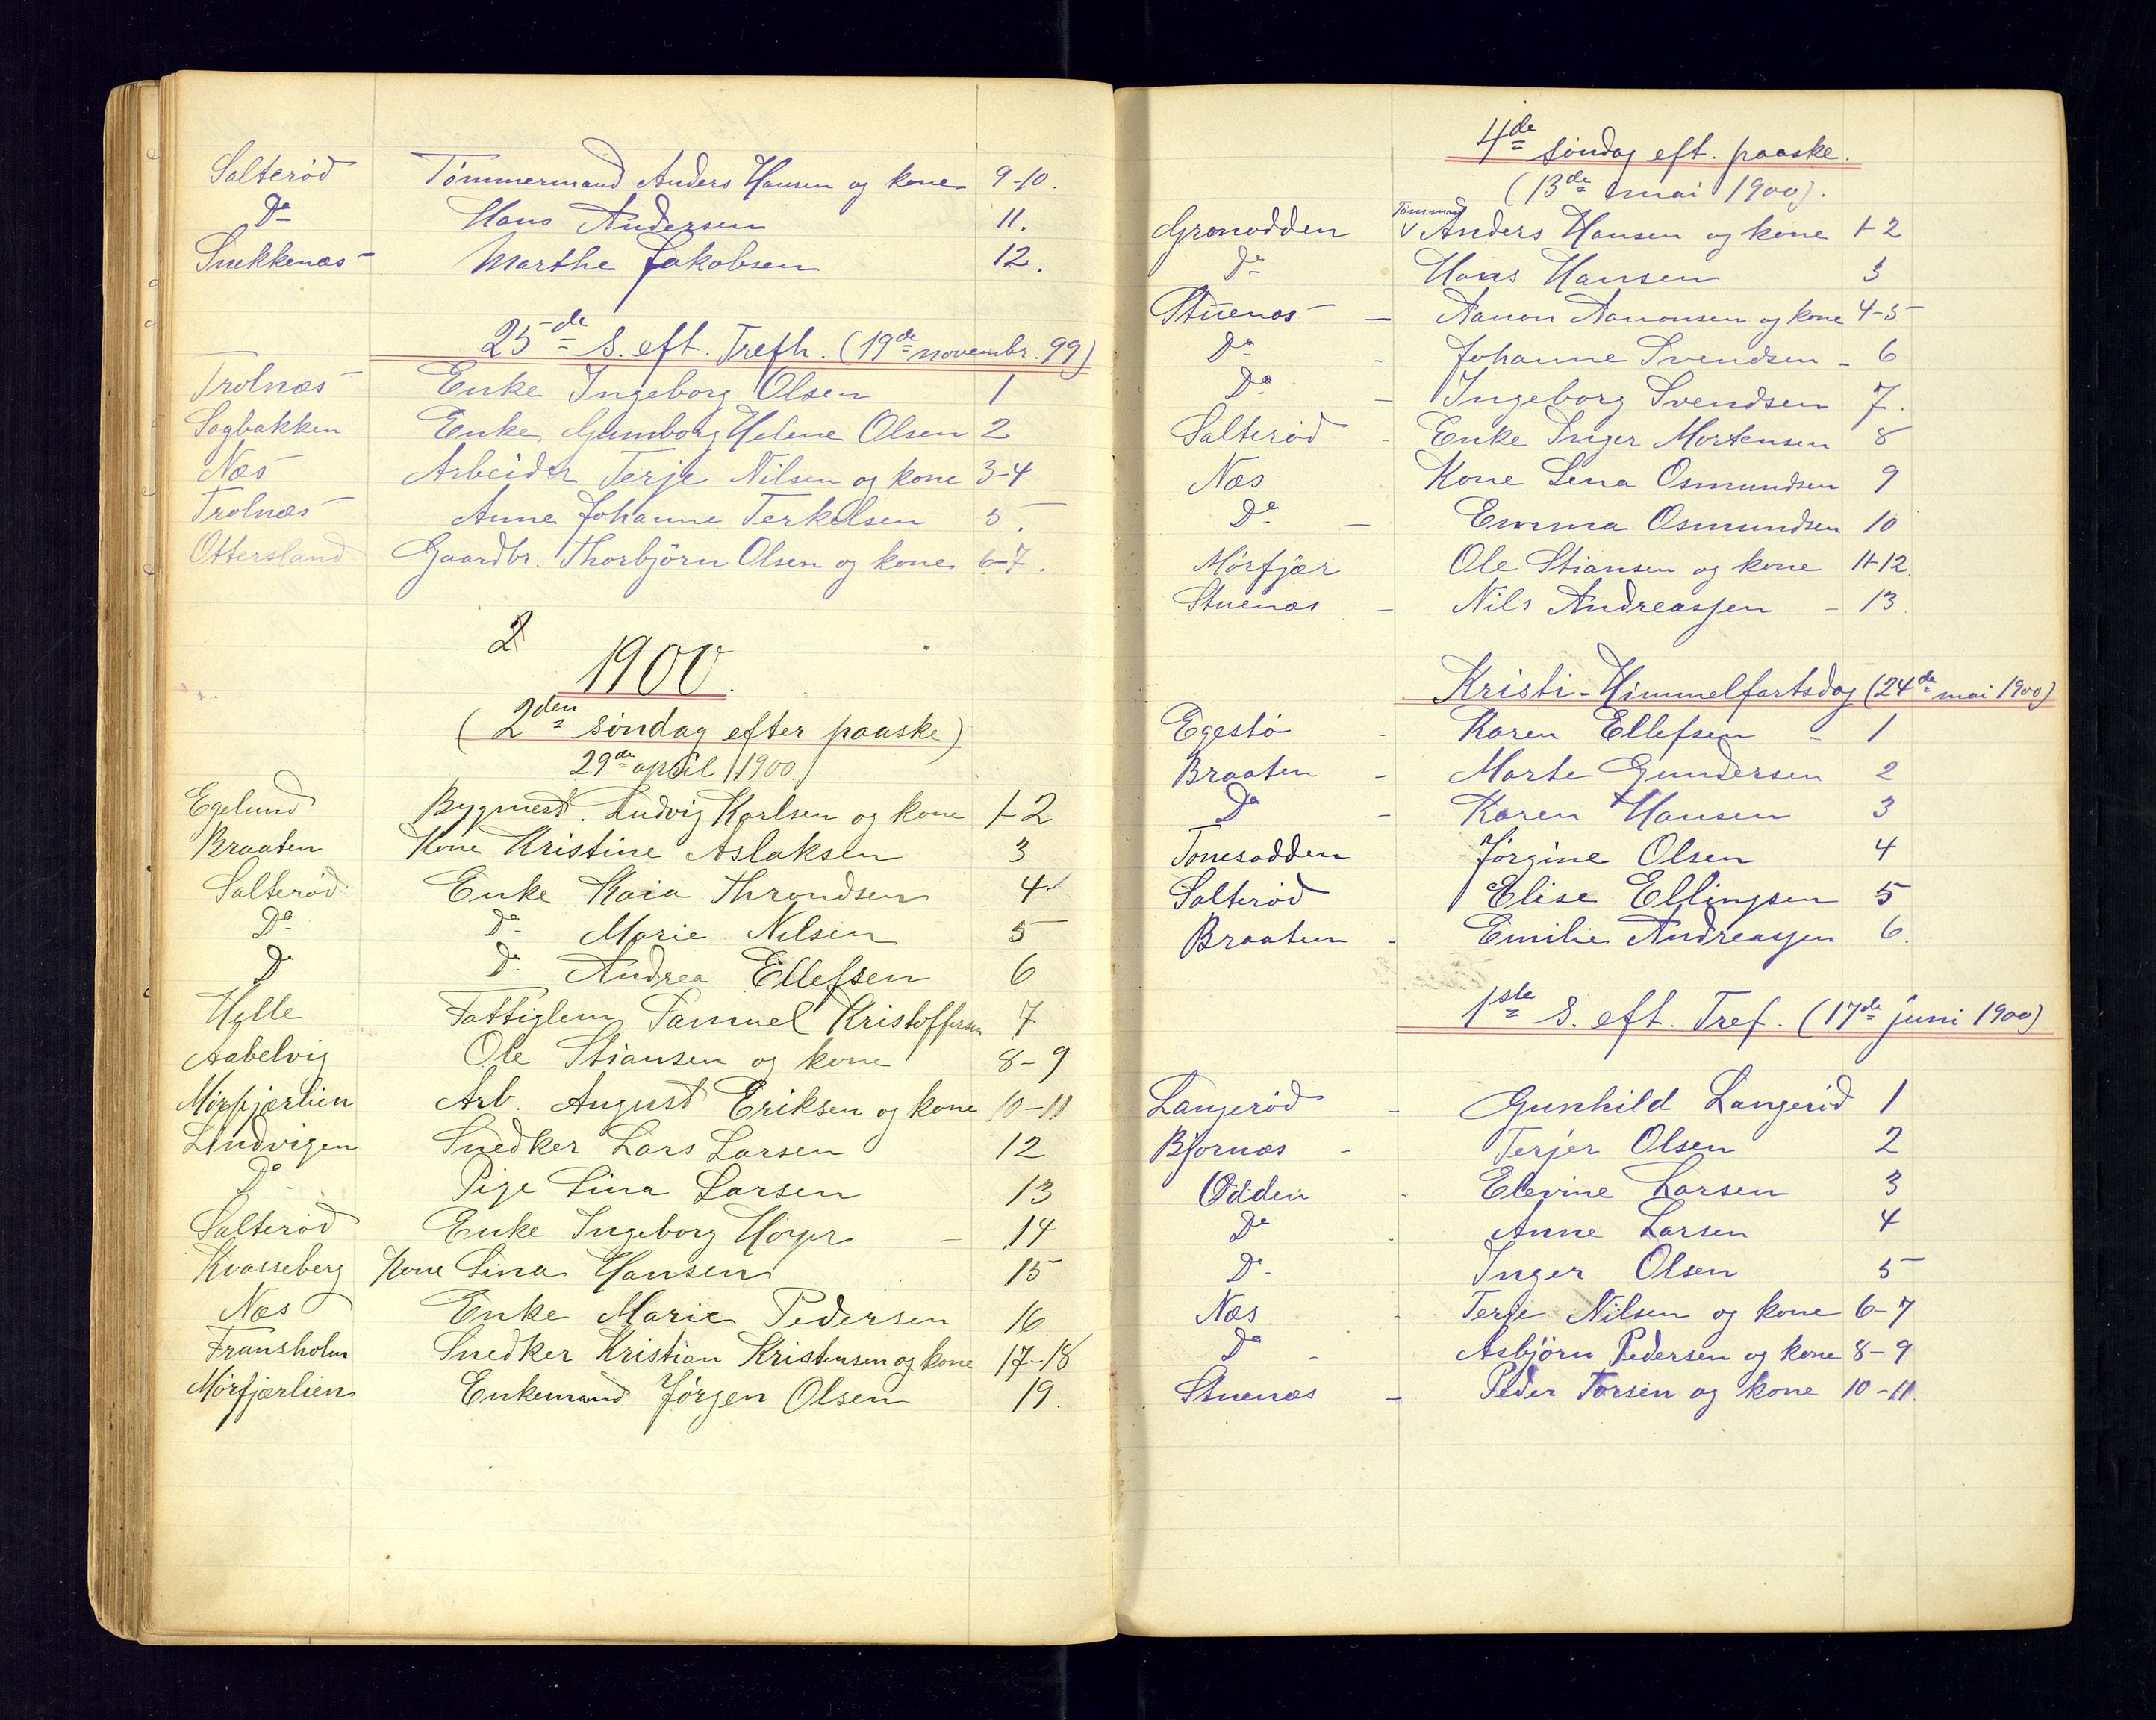 Salterød Tømmermand Anders Hansen og kone 9-10.
Do Hans Andersen 11.
Snekkenæs Marthe Jakobsen 12.
25de S. eft. Trefh. (19de novembr. 99)
Trolnæs Enke Ingeborg Olsen 1
Sagbakken Enke Gunborg Helene Olsen 2
Næs Arbeider Terje Nilsen og kone 3-4
Trolnæs Anne Johanne Terkelsen 5.
Ottersland Gaardbr. Thorbjørn Olsen og kone 6-7.
2
1900.
(2den søndag efter paaske)
29de april 1900.
Egelund Bygmest. Ludvig Karlsen og kone 1-2
Braaten Kone Kristine Aslaksen 3
Salterød Enke Kaia Throndsen 4
Do Do Marie Nilsen 5
Do Do Andrea Ellefsen 6
Hylle Fattiglem Samuel Kristoffersen 7
Aabelvig Ole Stiansen og kone 8-9
Mørfjærlien Arb. August Eriksen og kone 10-11
Lindvigen Snedker Lars Larsen 12
Do Pige Lina Larsen 13
Salterød Enke Ingeborg Høyer - 14
Kvasseberg Kone Lina Hansen 15
Næs Enke Marie Pedersen 16
Fransholm Snedker Kristian Kristensen og kone 17-18
Mørfjærlien Enkemand Jørgen Olsen 19.
4de søndag eft. paaske.
(13de mai 1900).
Grønodden Tømmermd Anders Hansen og kone 1-2
Do Hans Hansen 3
Stuenæs - Aanon Aanonsen og kone 4-5
Do - Johanne Svendsen - 6
Do - Ingeborg Svendsen 7.
Salterød - Enke Inger Mortensen 8
Næs Kone Lena Osmundsen 9
Do - Emma Osmundsen 10
Mørfjær Ole Stiansen og kone 11-12.
Stuenæs - Nils Andreassen - 13.
Kristi-Himmelfartsdag (24de mai 1900)
Egestø - Karen Ellefsen - 1
Braaten - Marte Gundersen 2
Do - Karen Hansen 3
Tonesodden Jørgine Olsen 4
Salterød Elise Ellingsen 5
Braaten - Emilie Andreassen 6.
1ste S. eft. Tref. (17de juni 1900)
Langerød - Gunhild Langerød 1
Bjørnæs - Terjer Olsen 2
Odden - Elevine Larsen 3
Do - Anne Larsen 4
Do Inger Olsen 5
Næs - Terje Nilsen og kone 6-7
Do - Asbjørn Pedersen og kone 8-9
Stuenæs - Peder Torsen og kone 10-11.